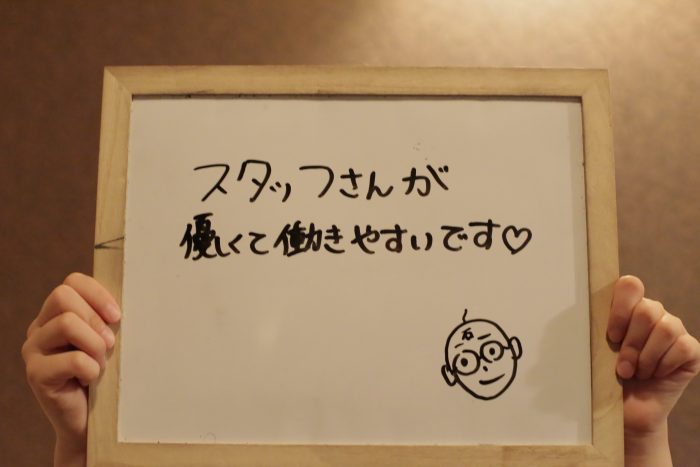 スタッフさんが
優しくて働きやすいです♡
石